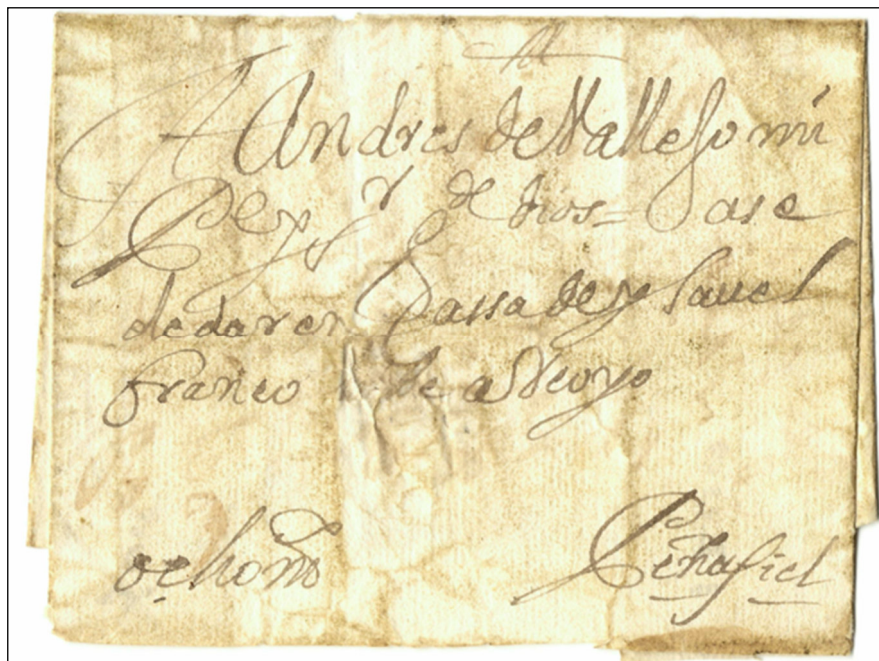 A Andres de Vallejo mi
de dios = ase
de dar en Cassa de ysauel
franco de aRoyo
ocho mrs
Peñafiel